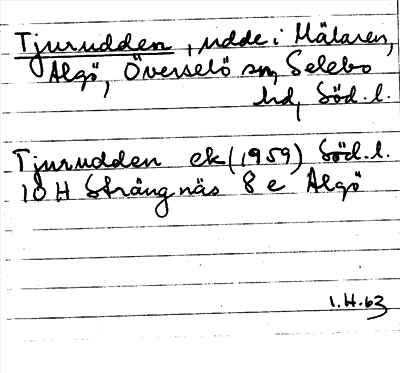 Tjurudden, udde i Mälaren,
Algö, Överselö sn, Selebo
hd, Söd. l.
Tjurudden ek (1959) Söd. l.
10 H Strängnäs 8 e Algö
1.H.63